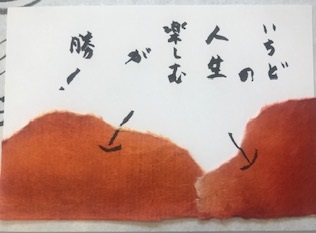 いちど
の
人生
楽しむ
が
勝!